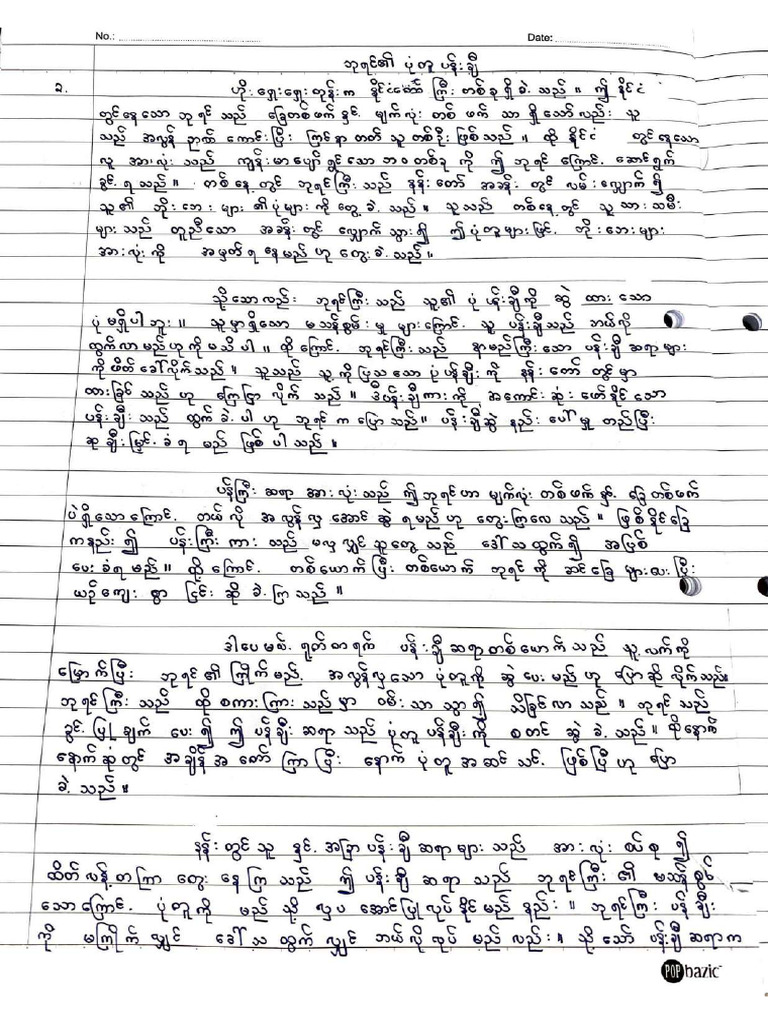 No.: Date:
ဘုရင်၏ ပုံတူ ပန်းချီ
၁. ဟိုးရှေးရှေးတုန်းက နိုင်ငံတော် ကြီး တစ်ခု ရှိ ခဲ့ သည် ။ ဤ နိုင်ငံ
တွင်နေသော ဘုရင် သည် ခြေတစ်ဖက် နှင့် မျက်လုံး တစ် ဖက် သာ ရှိသော်လည်း သူ
သည် အလွန် ဉာဏ် ကောင်းပြီး ကြင်နာ တတ် သူ တစ်ဦး ဖြစ်သည် ။ ထို နိုင်ငံ တွင်နေသော
လူ အားလုံး သည် ကျန်းမာပျော်ရွှင်သော ဘဝ တစ်ခု ကို ဤ ဘုရင် ကြောင့် ဆောင်ရွက်
ခွင့် ရ သည် ။ တစ်နေ့တွင် ဘုရင်ကြီး သည် နန်းတော် အခန်း တွင် လမ်းလျှောက် ၍
သူ၏ ဘိုးဘေး များ ၏ ပုံများ ကိုတွေ့ ခဲ့ သည် ။ သူသည် တစ်နေ့တွင် သူ သားသမီး
များ သည် တူညီသော အခန်း တွင် လျှောက် သွား၍ ဤပုံတူများ ဖြင့် ဘိုးဘေးများ
အားလုံး ကို အမှတ် ရ နေမည် ဟု တွေးခဲ့ သည် ။
သို့သော်လည်း ဘုရင်ကြီး သည် သူ၏ ပုံ ပန်းချီ ကို ဆွဲ ထား သော
ပုံ မရှိပါ ဘူး ။ သူ့မှာ ရှိသော မသန်စွမ်း မှု များကြောင့် သူ့ ပန်းချီသည် ဘယ်လို
ထွက်လာမည် ဟု ကို မသိ ပါ ။ ထို့ကြောင့် ဘုရင်ကြီး သည် နာမည်ကြီး သော ပန်းချီ ဆရာ များ
ကို ဖိတ်ခေါ်လိုက်သည် ။ သူသည် သူ့ကို ပြသသော ပုံ ပန်ချီး ကို နန်းတော် တွင် မှာ
ထားခြင် သည် ဟု ကြေငြာ လိုက် သည် ။ ဒီပန်းချီကား ကို အကောင်း ဆုံး ဖော်နိုင် သော
ပန်းချီး သည် ထွက် ခဲ့ ပါ ဟု ဘုရင် က ပြော သည် ။ ပန်းချီဆွဲ နည်း ပေါ် မှု တည်ပြီး
ဆု ချီးမြှင့် ခံ ရ မည် ဖြစ် ပါ သည် ။
ပန်ကြီး ဆရာ အားလုံး သည် ဤ ဘုရင် ဟာ မျက်လုံး တစ်ဖက် နှင့် ခြေ တစ်ဖက်
ပဲရှိသောကြောင့် ဘယ် လို အလွန်လှ အောင်ဆွဲ ရမည် ဟု တွေးကြလေ သည် ။ ဖြစ်နိုင်ခြေ
ကနည်း ၍ ပန်းကြီး ကား သည် မလှ လျှင် သူတွေ သည် ခေါ် သ ထွက်၍ အပြစ်
ပေး ခံရ မည် ။ ထို့ကြောင့် တစ်ယောက် ပြီး တစ်ယောက် ဘုရင် ကို ဆင်ခြေ များပေးပြီး
ယဉ်ကျေး စွာ ငြင်း ဆို ခဲ့ ကြ သည် ။
ဒါပေမယ့် ရုတ်တရက် ပန်းချီဆရာတစ်ယောက် သည် သူ့ လက်ကို
မြှောက်ပြီး ဘုရင် ၏ ကြိုက်မည့် အလွန်လှသော ပုံတူကို ဆွဲ ပေးမည် ဟု ပြောဆို လိုက် သည်။
ဘုရင်ကြီး သည် ထို စကား ကြား သည်မှာ ဝမ်း သာ သွား၍ သိခြင် လာ သည် ။ ဘုရင် သည်
ခွင့် ပြု ချက် ပေး ၍ ဤ ပန်းချီး ဆရာ သည် ပုံတူ ပန်းချီး ကို စတင် ဆွဲ ခဲ့ သည် ။ ထို့နောက်
နောက် ဆုံးတွင် အချိန် အတော် ကြာ ပြီး နောက် ပုံတူ အဆင် သင့် ဖြစ်ပြီ ဟု ပြော
ခဲ့ သည် ။
နန်းတွင် သူ နှင့် အခြား ပန်းချီ ဆရာ များ သည် အား လုံး စပ်စု ၍
ထိတ်လန့် တကြား တွေး နေကြ သည် ဤ ပန်းချီ ဆရာ သည် ဘုရင်ကြီး ၏ မသန်စွမ်း
သောကြောင့် ပုံတူကို မည် သို့ လှပ အောင်ပြု လုပ် နိုင် မည် နည်း ။ ဘုရင်ကြီး ပန်ချီး
ကို မကြိုက် လျှင် ခေါ် သ ထွက် လျှင် ဘယ်လိုလုပ် မည် လည်း ။ သို့ သော် ပန်းချီ ဆရာ က
POP bazic